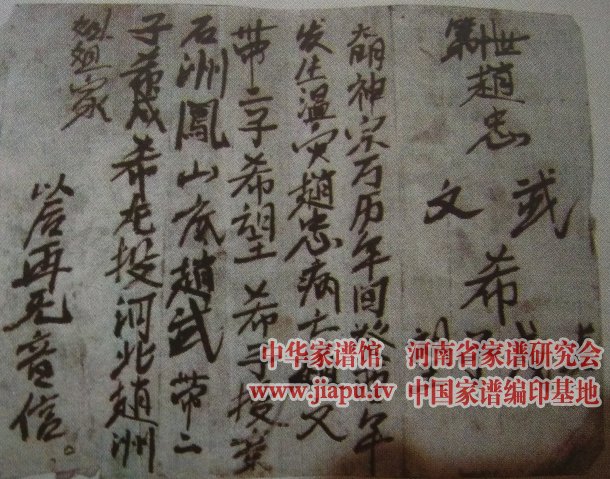 世趙忠
武
文
希
大明神宗万历年间年
发生温灾趙忠病亡文
带二子希望希于投
石洲鳳山底趙武带二
子希投河北趙洲
姐姐家
以后再无音信。
中华家谱馆 河南省家谱研究会
www.jiapu.tv 中国家谱编印基地